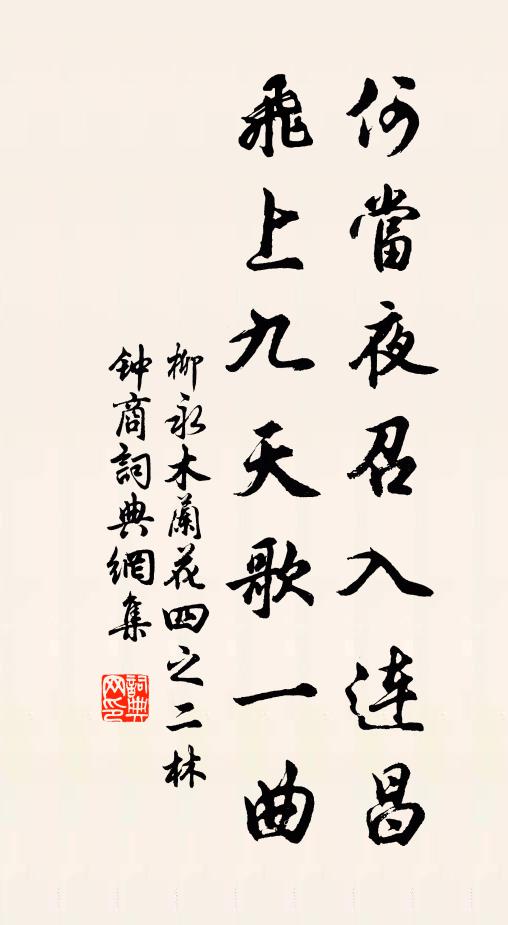 何當夜召入连昌
飛上九天歌一曲
柳永木蘭花四之二林
钟商詞典網集
詞典
网印